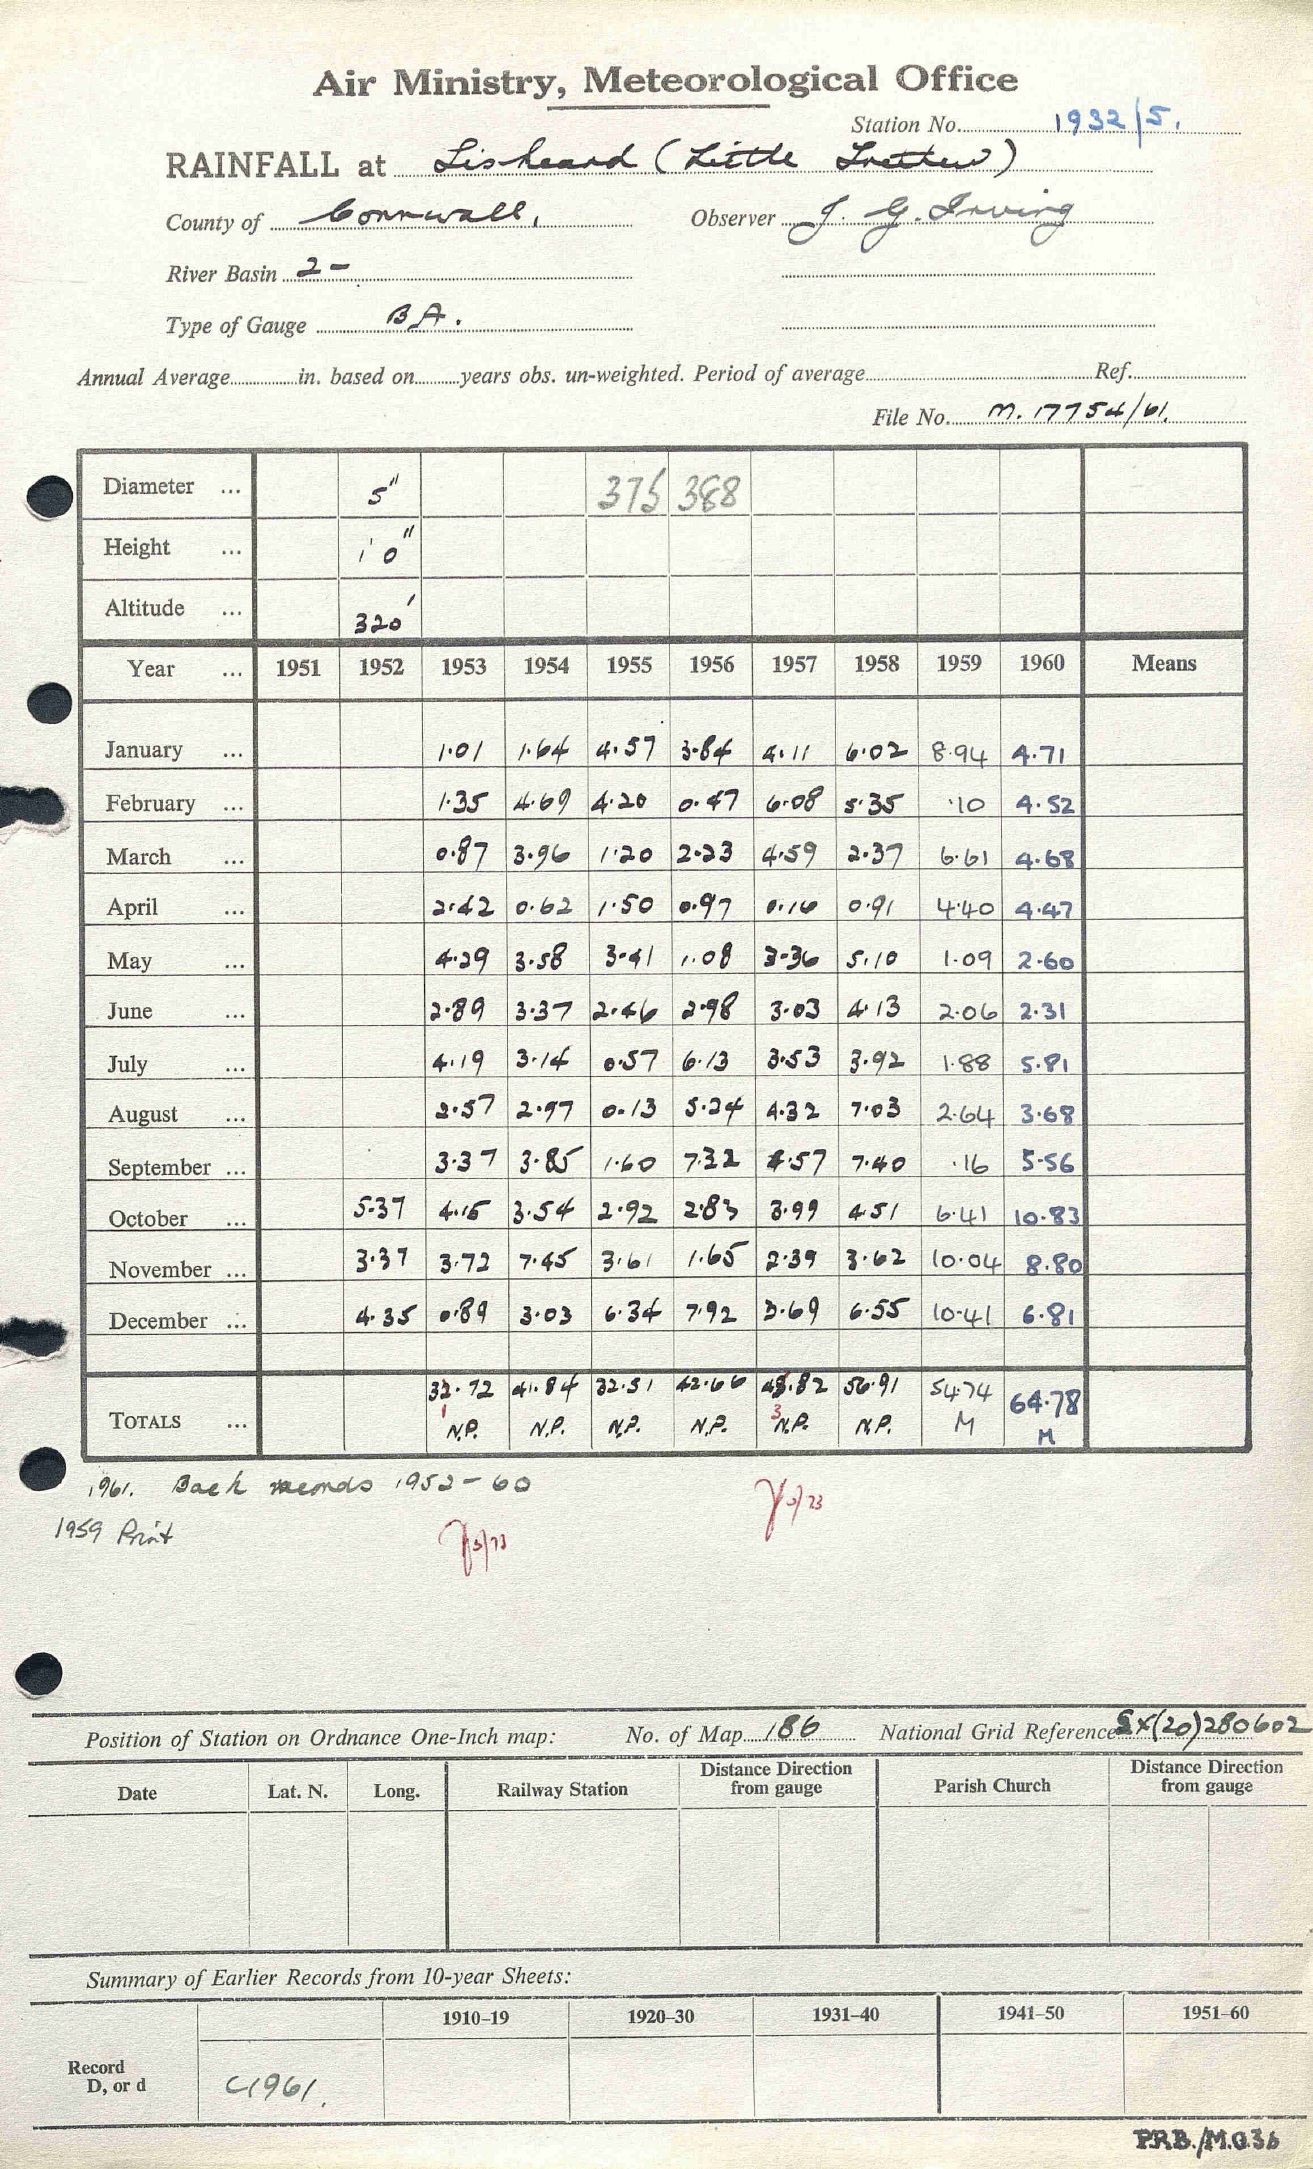 Air Ministry, Meteorological Office
Station No. 1932/5.
RAINFALL at Liskeard (Little Trethew)
County of Cornwall, Observer J. G. Irving
River Basin 2-
Type of Gauge BA.
Annual Average in. based on years obs. un-weighted. Period of average Ref.
File No. M. 17754/61.
Diameter ... 5" 375 388
Height ... 1' 0"
Altitude ... 320'
Year ... 1951 1952 1953 1954 1955 1956 1957 1958 1959 1960 Means
January ... 1.01 1.64 4.57 3.84 4.11 6.02 8.94 4.71
February ... 1.35 4.69 4.20 0.47 6.08 5.35 .10 4.52
March ... 0.87 3.96 1.20 2.23 4.59 2.37 6.61 4.68
April ... 2.42 0.62 1.50 0.97 0.16 0.91 4.40 4.47
May ... 4.29 3.58 3.41 1.08 3.36 5.10 1.09 2.60
June ... 2.89 3.37 2.46 2.98 3.03 4.13 2.06 2.31
July ... 4.19 3.14 0.57 6.13 3.53 3.92 1.88 5.81
August ... 2.57 2.97 0.13 5.24 4.32 7.03 2.64 3.68
September ... 3.37 3.85 1.60 7.32 4.57 7.40 .16 5.56
October ... 5.37 4.15 3.54 2.92 2.83 3.99 4.51 6.41 10.83
November ... 3.37 3.72 7.45 3.61 1.65 2.39 3.62 10.04 8.80
December ... 4.35 0.89 3.03 6.34 7.92 3.69 6.55 10.41 6.81
32.72 41.84 32.51 42.66 48.82 56.91 54.74 64.78
1 3
TOTALS ... N.P. N.P. N.P. N.P. N.P. N.P. M M
1961. Back records 1952-60
1959 Print
3/73
Position of Station on Ordnance One-Inch map: No. of Map 186 National Grid Reference SX(20)280602
Date Lat. N. Long. Railway Station Distance Direction from gauge Parish Church Distance Direction from gauge
Summary of Earlier Records from 10-year Sheets:
1910–19 1920–30 1931–40 1941–50 1951–60
Record
D, or d C1961.
P.R.B./M.O.3b